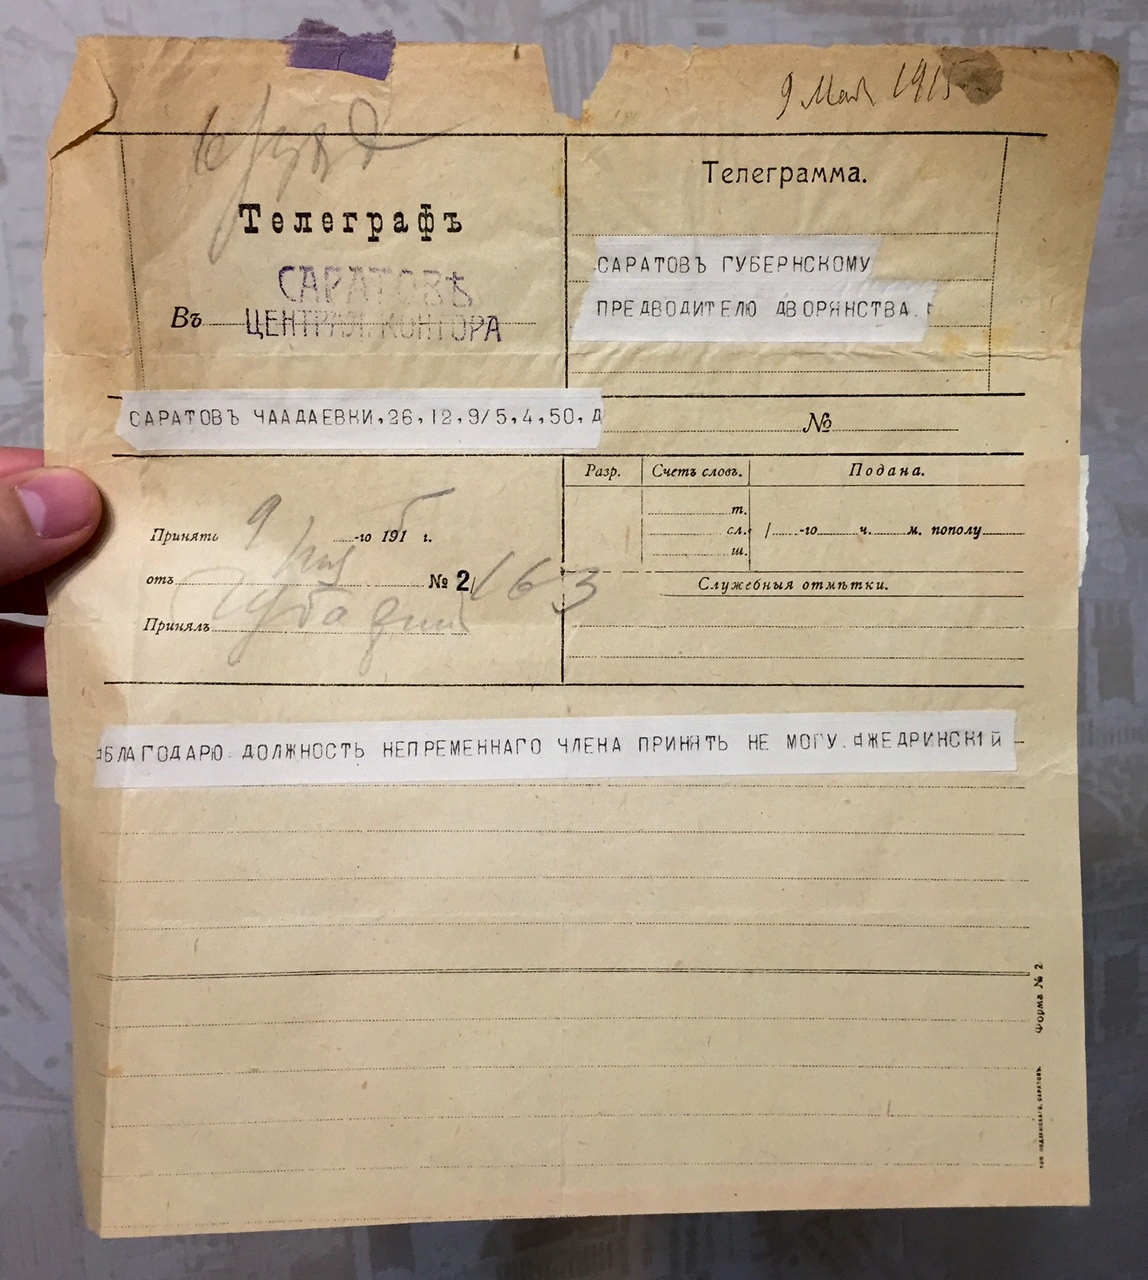 9 Мая 1915
Телеграфъ
САРАТОВЪ
Въ ЦЕНТРАЛ. КОНТОРА
Телеграмма.
САРАТОВЪ ГУБЕРНСКОМУ
ПРЕДВОДИТЕЛЮ ДВОРЯНСТВА.
САРАТОВЪ ЧААДАЕВКИ,26,12,9/5,4,50,Д
№
Разр. Счетъ словъ. Подана.
т.
сл. /...-го ч. м. пополу
ш.
Принять 9 -го 1915 г.
мая
отъ № 2/163
Служебныя отмѣтки.
Принялъ
БЛАГОДАРЮ ДОЛЖНОСТЬ НЕПРЕМЕННАГО ЧЛЕНА ПРИНЯТЬ НЕ МОГУ. ЖЕДРИНСКІЙ -
Форма № 2